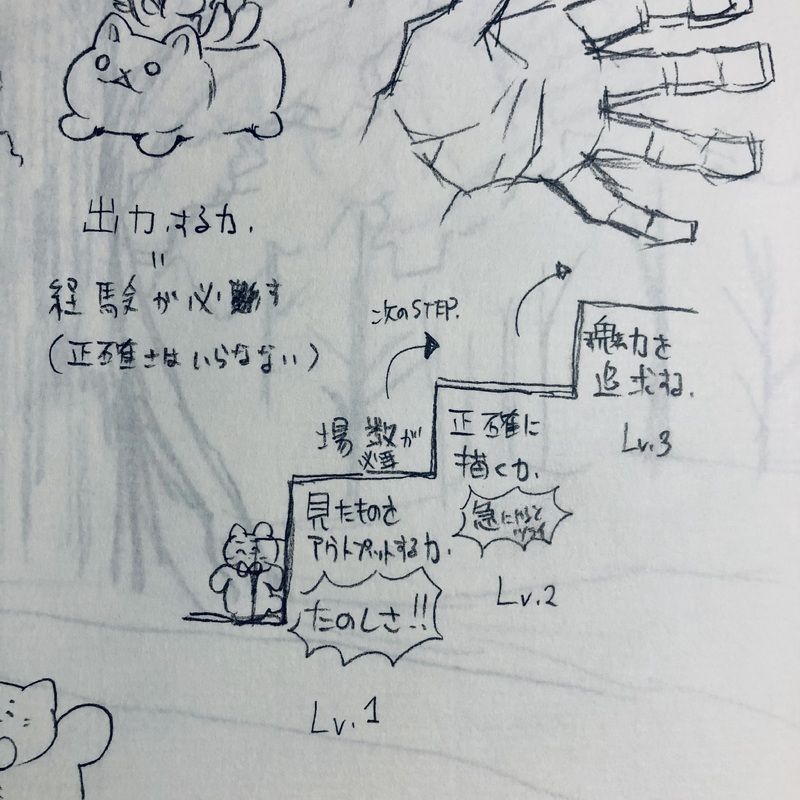 出力する力.
=
経験が必要
(正確さはいらない)
次のSTEP.
場数が
必要
見たものを
アウトプットする力.
たのしさ!!
Lv.1
正確に
描く力.
急にやると
ツライ
Lv.2
魅力を
追求する.
Lv.3